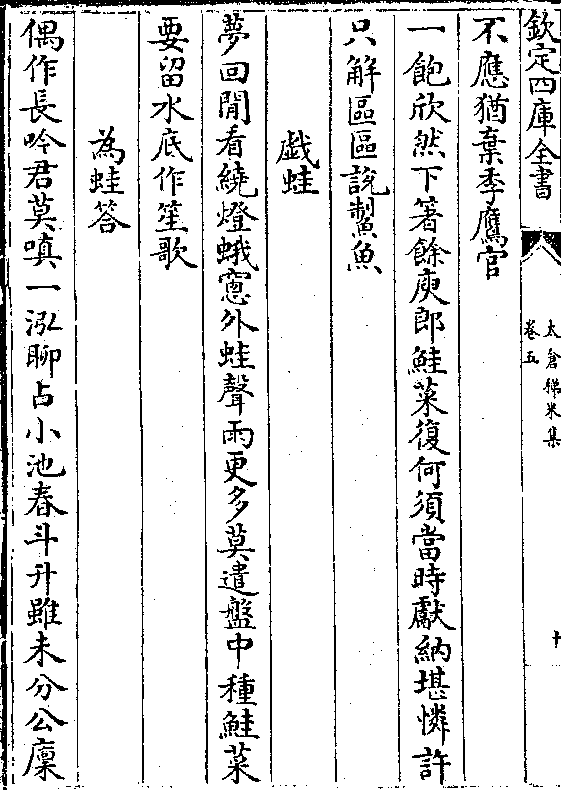 欽定四庫全書
太倉稊米集
卷五
十
不應猶棄季鷹官
一飽欣然下箸餘庾郎鮭菜復何須當時獻納堪憐許
只解區區說鱟魚
戯蛙
夢回閒看繞燈蛾窻外蛙聲雨更多莫遣盤中種鮭菜
要留水底作笙歌
為蛙答
偶作長吟君莫嗔一泓聊占小池春斗升雖未分公廩